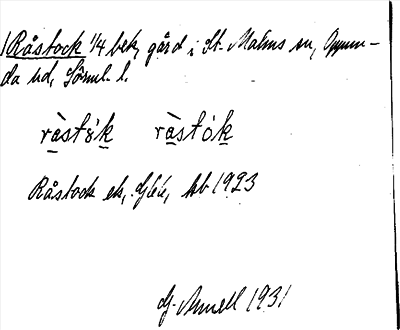 Råstock 1/4 bek, gård i St. Malms sn, Oppun-
da hd, Söml. l.
ràstö̀k ràstók
Råstock ek, Gbl, kb 1923
G. Annell 1931